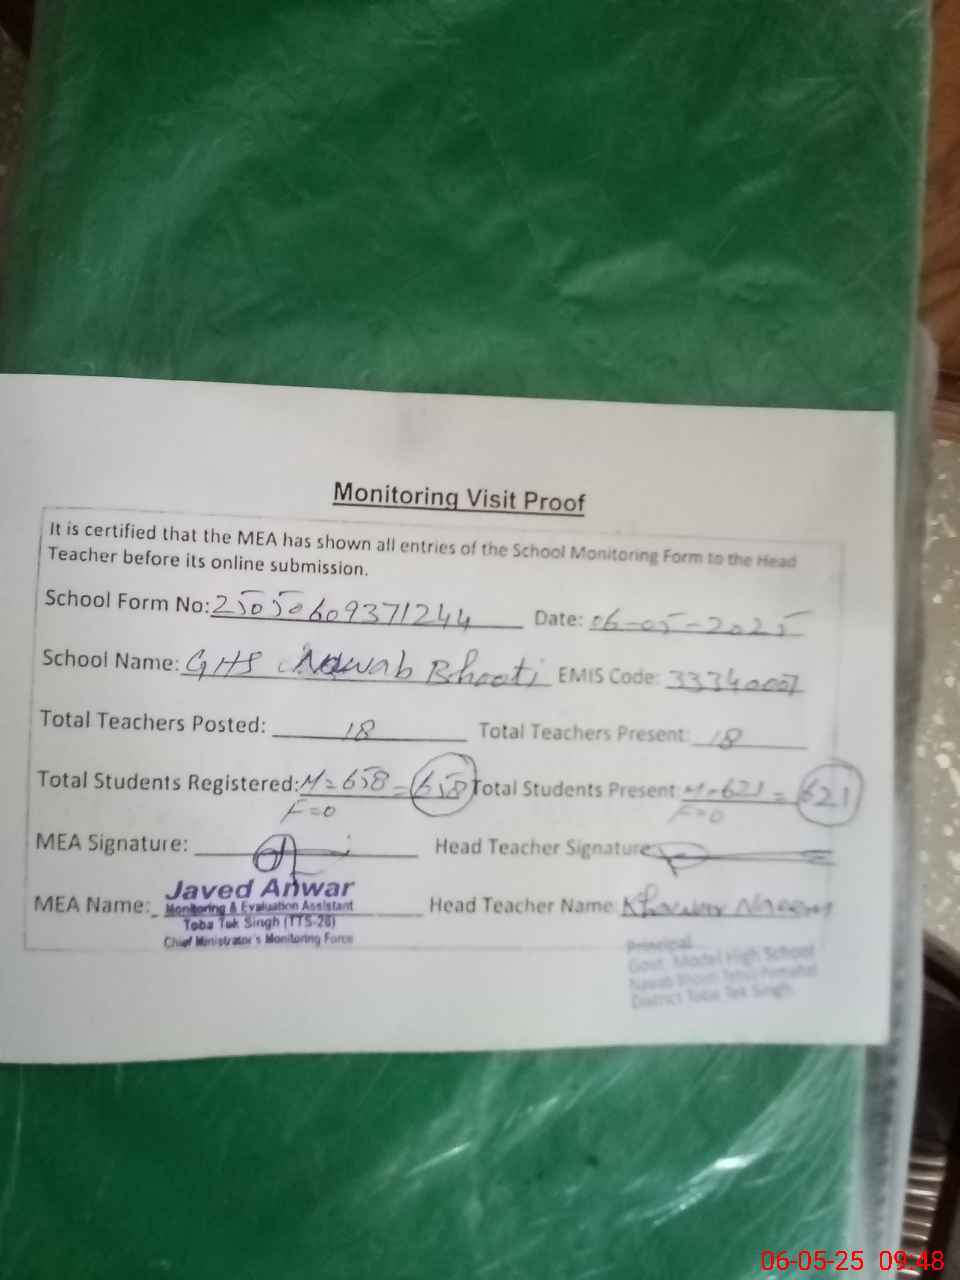 Monitoring Visit Proof
It is certified that the MEA has shown all entries of the School Monitoring Form to the Head
Teacher before its online submission.
School Form No: 25050609371244 Date: 06-05-2025
School Name: GHS Nawab Bhooti EMIS Code: 33340007
Total Teachers Posted: 18 Total Teachers Present: 18
Total Students Registered: M=658 = 658 Total Students Present: M=621 = 621
F=0 F=0
MEA Signature: Head Teacher Signature
MEA Name: Javed Anwar Head Teacher Name: Khawar Naeem
Monitoring & Evaluation Assistant
Toba Tek Singh (TTS-26)
Chief Ministrator's Monitoring Force
Principal
Govt. Model High School
Nawab Bhooti Tehsil Pirmahal
District Toba Tek Singh
06-05-25 09:48